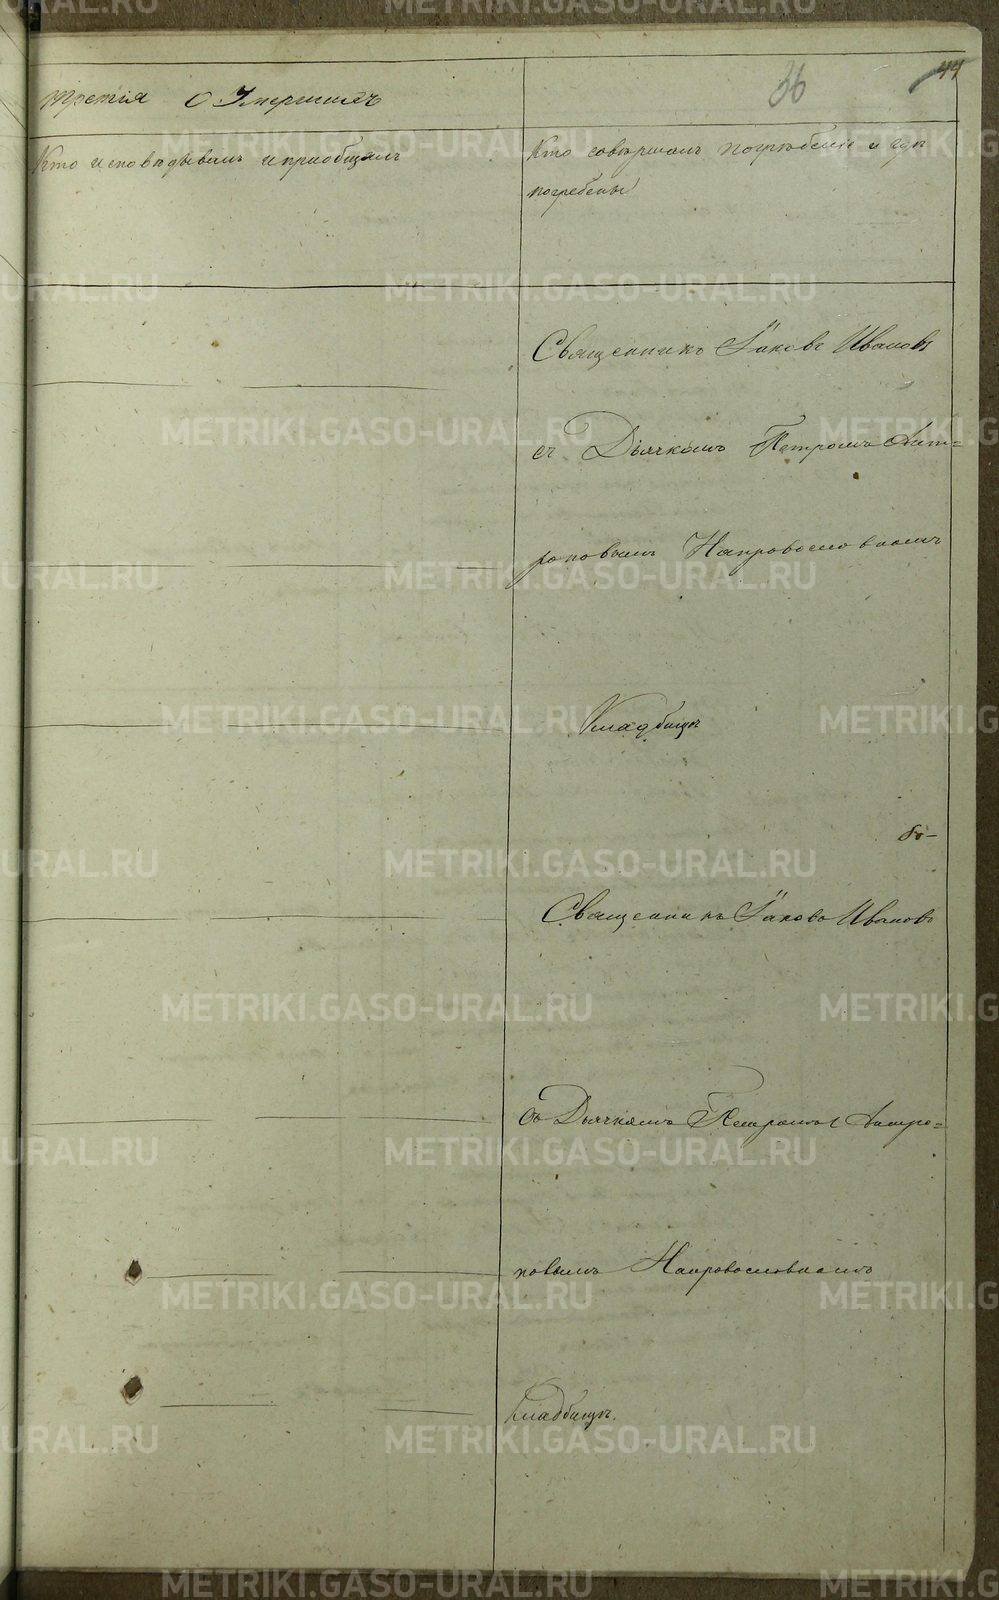 третія О Умершихъ
36
44
Кто исповѣдывалъ и приобщалъ
Кто совершалъ погребеніе и гдѣ
погребены
Священникъ Іаковъ Ивановъ
съ Дьячкомъ Петромъ Ант=
роповымъ На православномъ
Кладбищѣ
Священникъ Іаковъ Ивановъ
съ Дьячкомъ Петромъ Антро=
повымъ На православномъ
Кладбищѣ.
METRIKI.GASO-URAL.RU